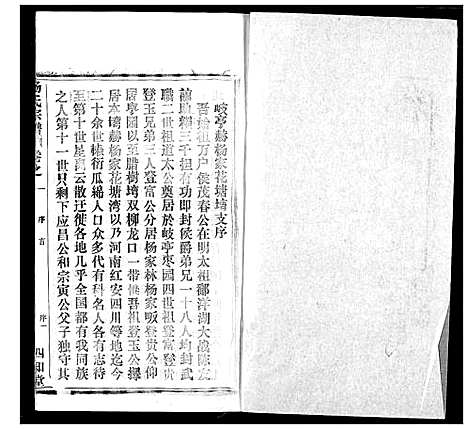 岐亭赫杨家花塘塆支序
吾始祖万户侯茂春公在明太祖鄱洋湖大战陈友
谅助粮三千担有功即封侯爵弟兄一十八人均封武
职二世祖道太公奠居於岐亭枣园四世祖登贵公
登玉公兄弟三人登富公分居杨家林杨家畈登贵公仰
居亭园以至腊树塆双柳龙口一带惟吾祖登玉公择
居本塆赫杨家花塘湾以乃河南红安四川等地迄今
二十余世椒衍瓜綿人口众多代有科名人各有志待
至第十世星昌云散迁徙各地几乎全国都有我同族
之人第十一世只剩下应昌公和宗寅公父子独守其
杨氏宗谱
卷之一
序言
序一
四知堂